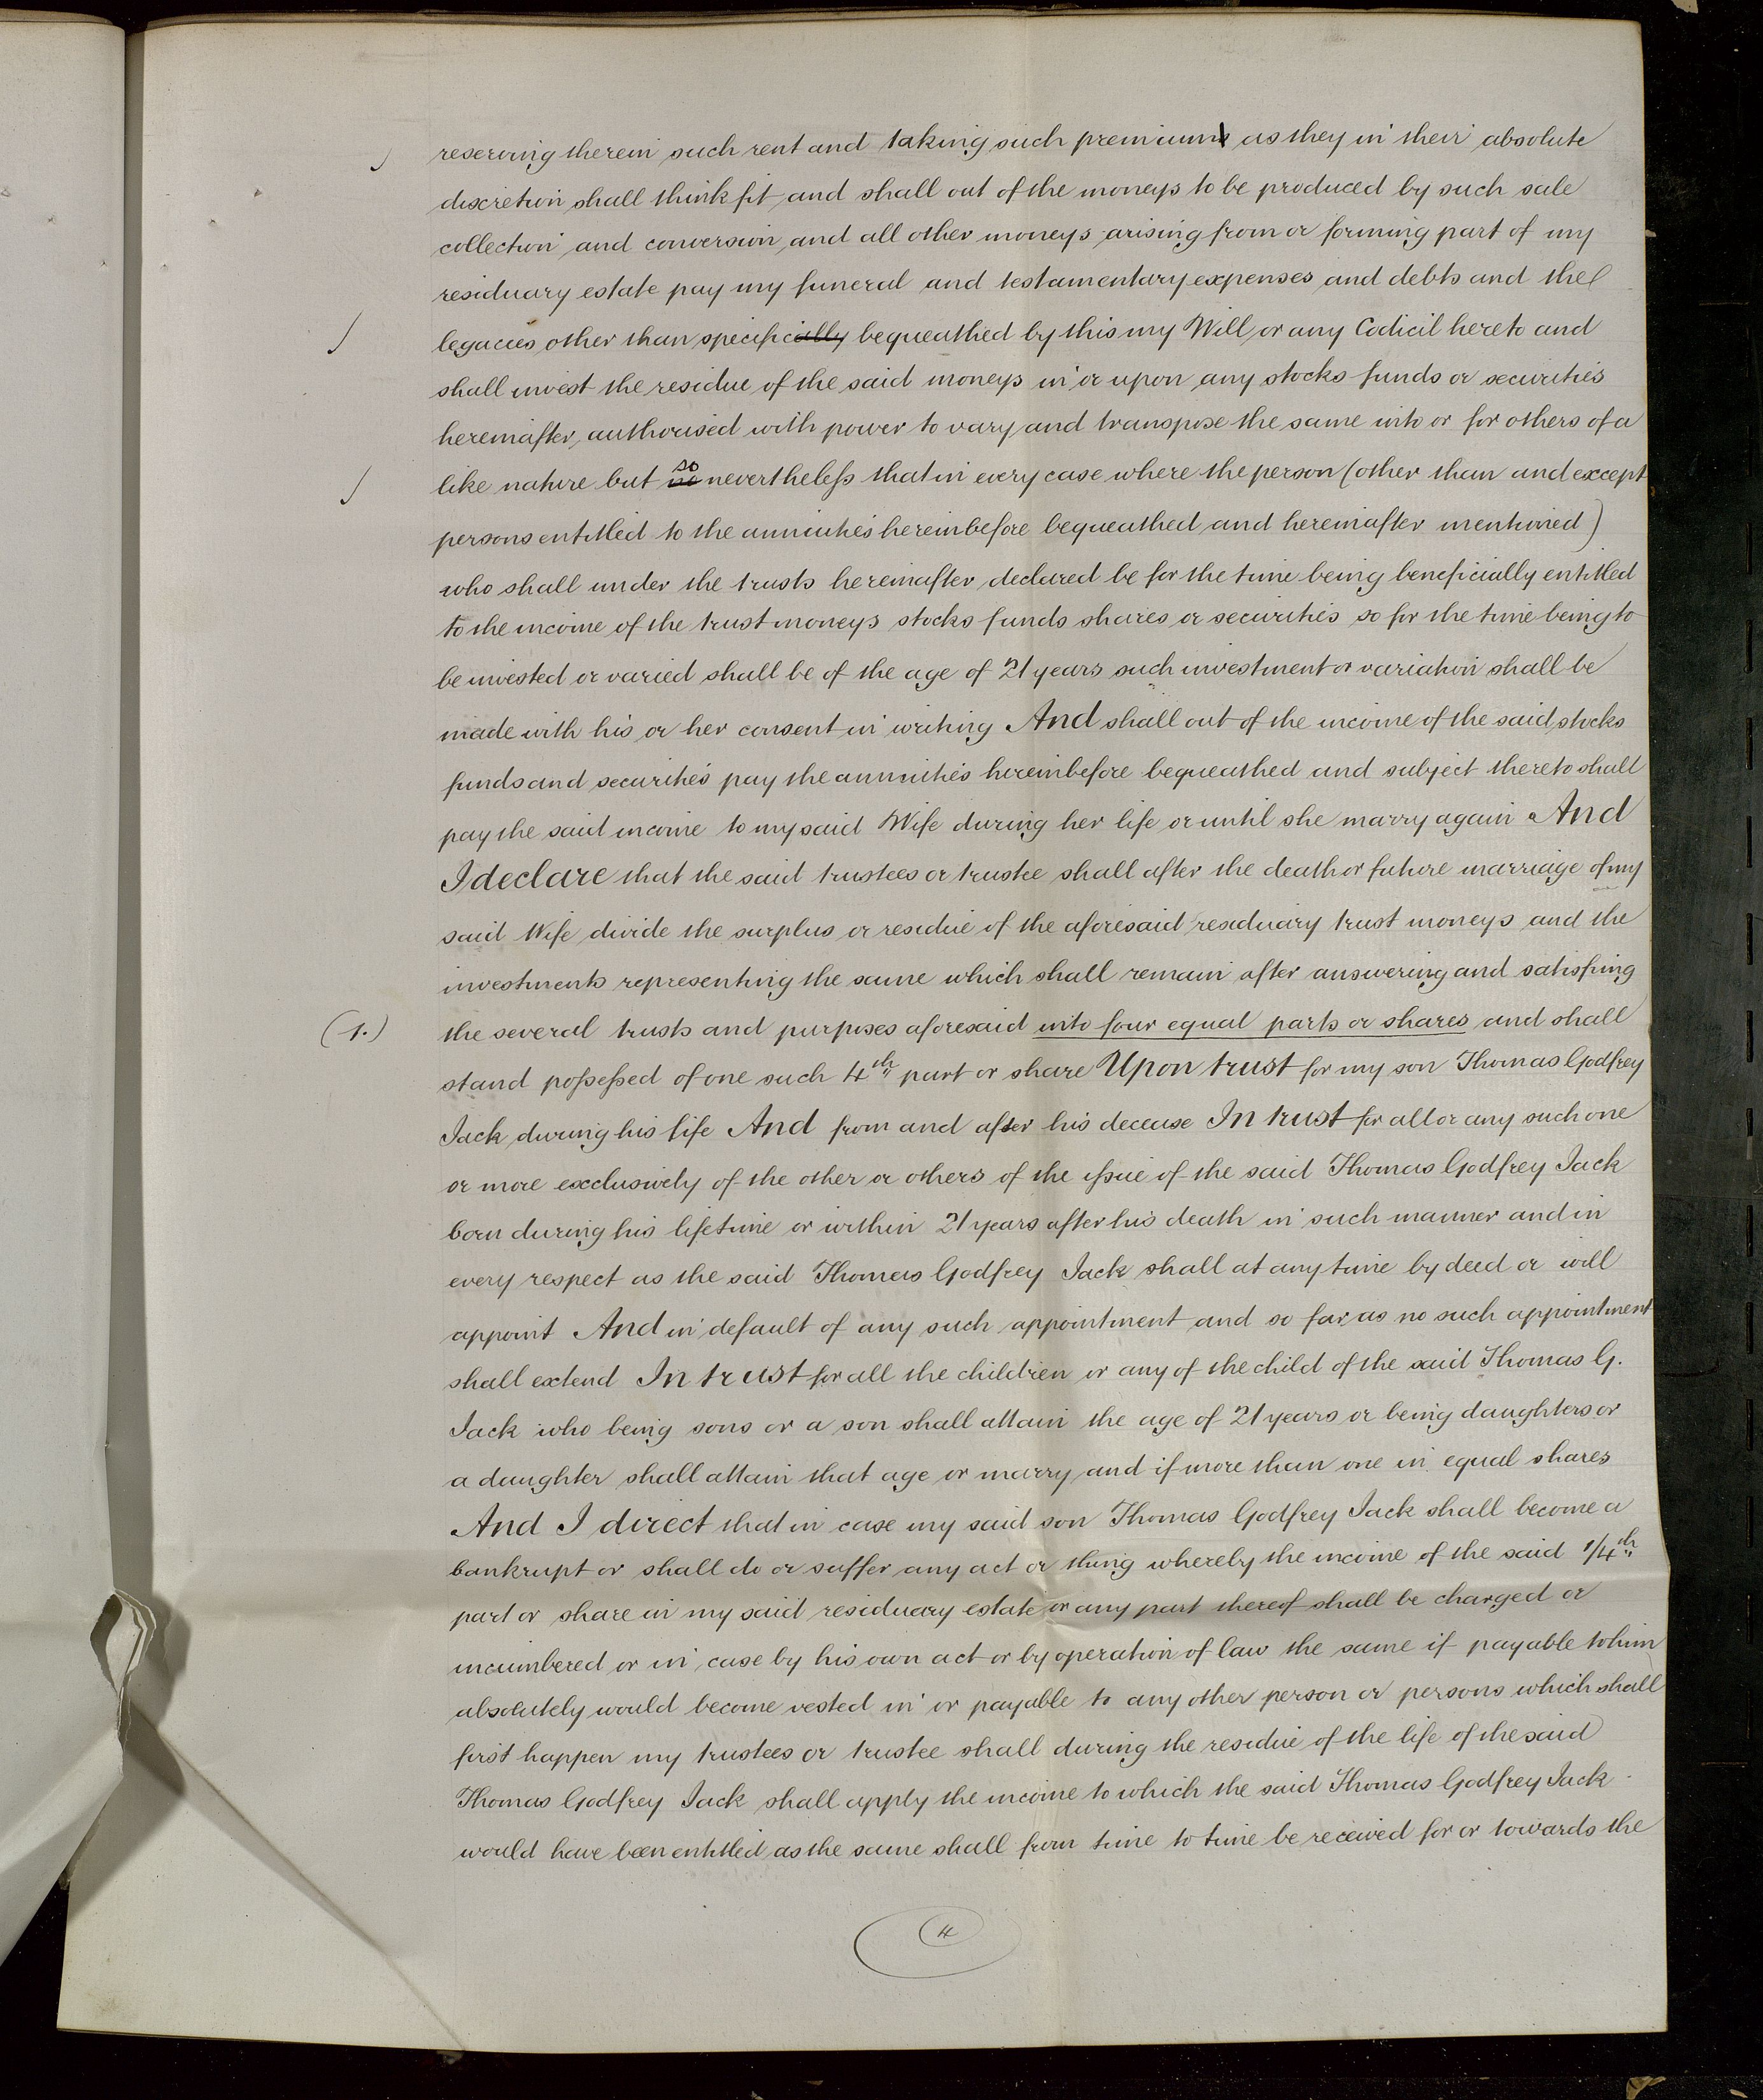 reserving therein such rent and taking such premium as they in their absolute
discretion shall think fit and shall out of the moneys to be produced by such sale
collection and conversion and all other moneys arising from or forming part of my
residuary estate pay my funeral and testamentary expenses and debts and the
legacies other than specifically bequeathed by this my Will or any Codicil hereto and
shall invest the residue of the said moneys in or upon any stocks funds or securities
hereinafter authorised with power to vary and transpose the same into or for others of a
like nature but so nevertheless that in every case where the person (other than and except
persons entitled to the annuities hereinbefore bequeathed and hereinafter mentioned)
who shall under the trusts hereinafter declared be for the time being beneficially entitled
to the income of the trust moneys stocks funds shares or securities so for the time being to
be invested or varied shall be of the age of 21 years such investment or variation shall be
made with his or her consent in writing And shall out of the income of the said stocks
funds and securities pay the annuities hereinbefore bequeathed and subject thereto shall
pay the said income to my said Wife during her life or until she marry again And
I declare that the said trustees or trustee shall after the death or future marriage of my
said Wife divide the surplus or residue of the aforesaid residuary trust moneys and the
investments representing the same which shall remain after answering and satisfing
(1.) the several trusts and purposes aforesaid into four equal parts or shares and shall
stand possessed of one such 4th part or share Upon trust for my son Thomas Godfrey
Jack during his life And from and after his decease In trust for all or any such one
or more exclusively of the other or others of the issue of the said Thomas Godfrey Jack
born during his lifetime or within 21 years after his death in such manner and in
every respect as the said Thomas Godfrey Jack shall at any time by deed or will
appoint And in default of any such appointment and so far as no such appointment
shall extend In trust for all the children or any of the child of the said Thomas G.
Jack who being sons or a son shall attain the age of 21 years or being daughters or
a daughter shall attain that age or marry and if more than one in equal shares
And I direct that in case my said son Thomas Godfrey Jack shall become a
bankrupt or shall do or suffer any act or thing whereby the income of the said 1/4th
part or share in my said residuary estate or any part thereof shall be charged or
incumbered or in case by his own act or by operation of law the same if payable to him
absolutely would become vested in or payable to any other person or persons which shall
first happen my trustees or trustee shall during the residue of the life of the said
Thomas Godfrey Jack shall apply the income to which the said Thomas Godfrey Jack
would have been entitled as the same shall from time to time be received for or towards the
4